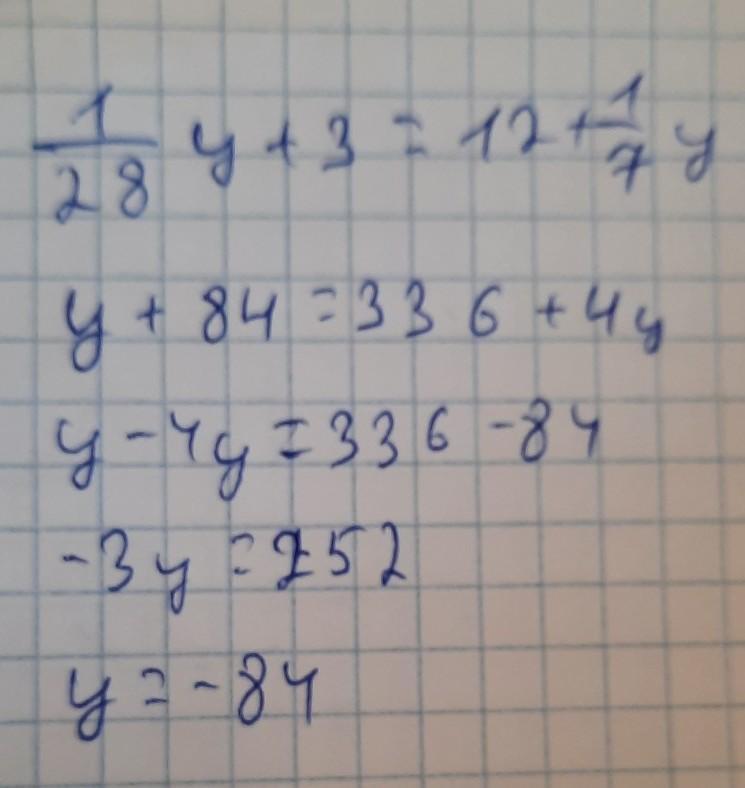 1/28 y + 3 = 12 + 1/7 y
y + 84 = 336 + 4y
y - 4y = 336 - 84
-3y = 252
y = -84